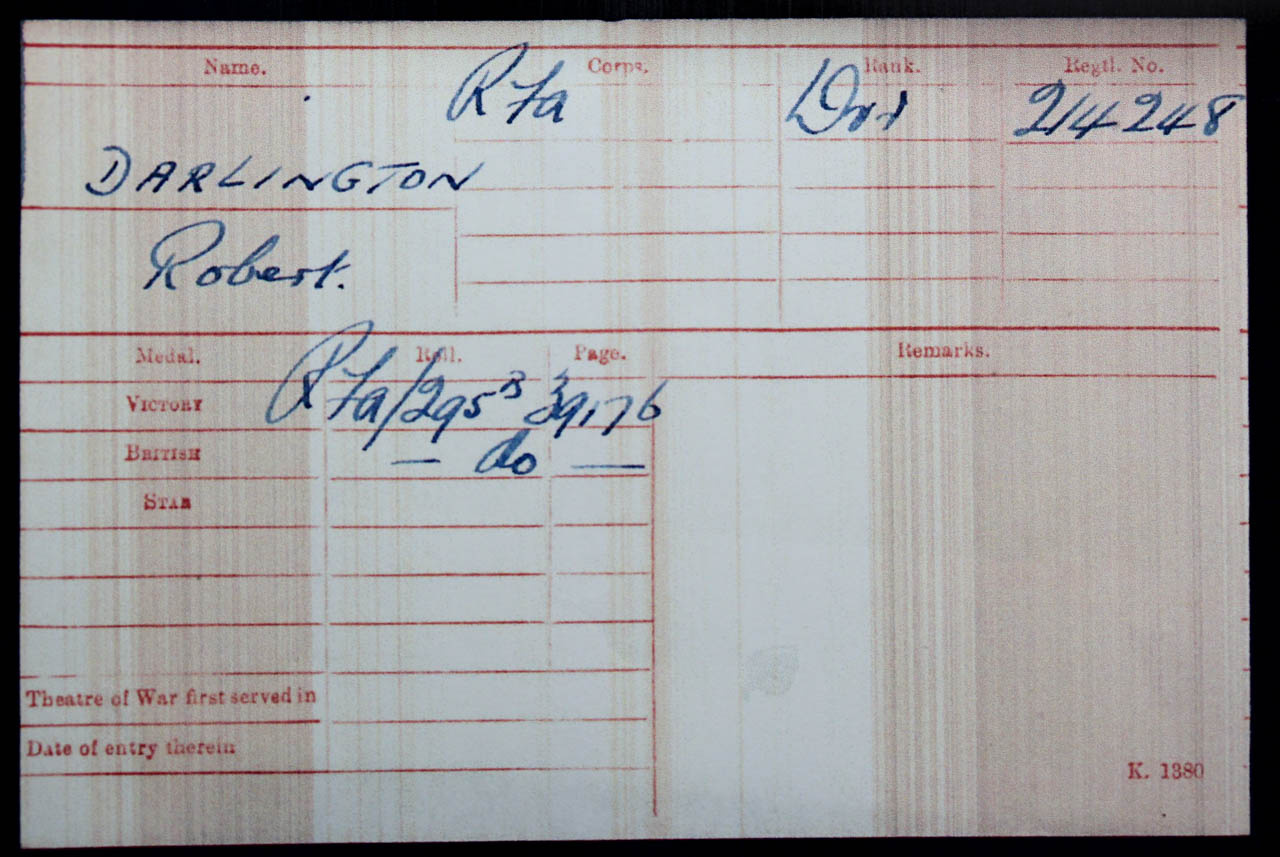 Name. Corps. Rank. Regtl. No.
RFa Dvr 214248
DARLINGTON
Robert.
Medal. Roll. Page. Remarks.
VICTORY RFa/295B 39176
BRITISH — do —
STAR
Theatre of War first served in
Date of entry therein
K. 1380